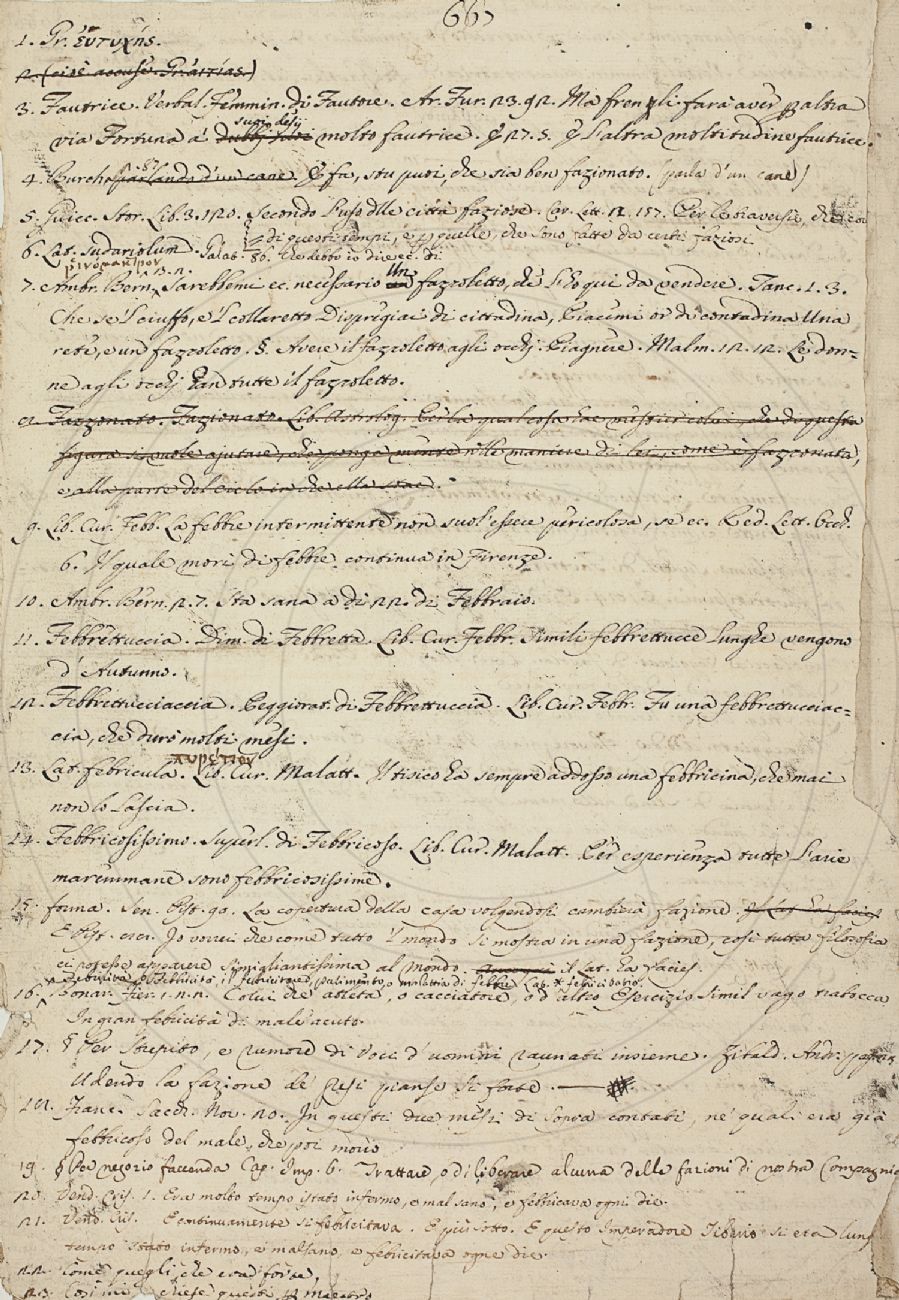 667
1. Gr. εὐτυχής.
3. Fautrice. Verbal. Femmin. di Fautore. Ar. Fur. 23. 92. Ma fren gli farà aver p altra
sugi desij
via Fortuna a' molto fautrice. E 27. 5. E l'altra moltitudine fautrice.
4. Burch. 87. E fa, stu puoi, che sia ben fazionato. (parla d'un cane)
5. Guicc. Stor. Lib. 3. 120. Secondo l'uso dlle città faziose. Car. Lett. 12. 157. Per le traversie, che
di questi tempi, e p quelle, che sono fatte da certi faziosi
6. Lat. Sudariolum. Galat. 80. Che debbo io dire ec. di
ῥινόμακτρον
7. Ambr. Bern. 13. 2. Sarebbemi ec. necessario Un fazzoletto, de' ch'o qui da vendere. Tanc. 1. 3.
Che se 'l ciuffo, e 'l collaretto Dispregiai di cittadina, Piacemi or di contadina Una
rete, e un fazzoletto. §. Avere il fazzoletto agli occhj. Piagnere. Malm. 12. 12. Le don-
ne agli occhj han tutte il fazzoletto.
8. Fazzonato. Fazionato. Lib. Astrolog. Per la qual cosa hae mestier colui, che di questa
figura si vuole ajutare, che ponga mente nelle maniere di lei, come è fazzonata,
e alla parte del Cielo in che ella stae.
9. Lib. Cur. Febb. La febbre intermittente non suol essere pericolosa, se ec. Red. Lett. Occh.
6. Il quale morì di febbre continua in Firenze.
10. Ambr. Bern. 2. 7. Sta sana a dì 22. di Febbraio.
11. Febbrettuccia. Dim. di Febbretta. Lib. Cur. Febbr. Simili febbrettucce lunghe vengono
d'Autunno.
12. Febbrettucciaccia. Peggiorat. di Febbrettuccia. Lib. Cur. Febbr. Fu una febbrettucciac-
cia, che durò molti mesi.
πυρέτιον
13. Lat. febricula. Lib. Cur. Malatt. Il tisico ha sempre addosso una febbricina, che mai
non lo lascia.
14. Febbricosissimo. Superl. di Febbricoso. Lib. Cur. Malatt. Per esperienza tutte l'arie
maremmane sono febbricosissime.
15. forma. Sen. Pist. 90. La copertura della casa volgendosi cambierà fazione
E Pist. Io vorrei che come tutto 'l mondo si mostra in una fazione, così tutta filosofia
ci potesse apparere simigliantissima al mondo. il Lat. ha facies.
16. Bonar. Fier. 1. 2. 2. Colui che atleta, o cacciatore, o d'altro Esercizio simil vago trabocca
In gran febicità di male acuto.
17. § Per Strepito, e rumore di voci d'uomini raunati insieme. Zibald. Andr.
Udendo la fazione de' Resi pianse sì forte.
18. Franc. Sacch. Nov. 20. In questi due mesi di sopra contati, ne' quali era già
febbricoso del male, che poi morìo
19. § Per negozio faccenda Cap. Imp. 6. Trattare, o diliberare alcuna delle fazioni di nostra Compagnia
20. Vend. Cris. 1. Era molto tempo istato infermo, e mal sano, e febbricava ogni die.
21. Vend. Cris. E continuamente si febbricitava. E più sotto. E questo Imperadore Tiberio si era lung
tempo stato infermo, e malsano, e febbricitava ogne die.
22. Come quegli, che era forse,
23. Così mi chiese questi